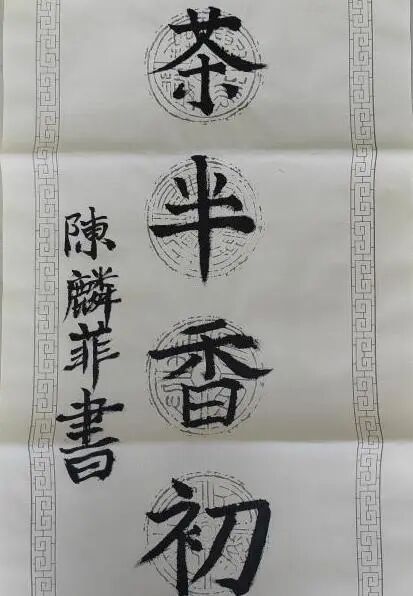 茶半香初
陳麟菲書